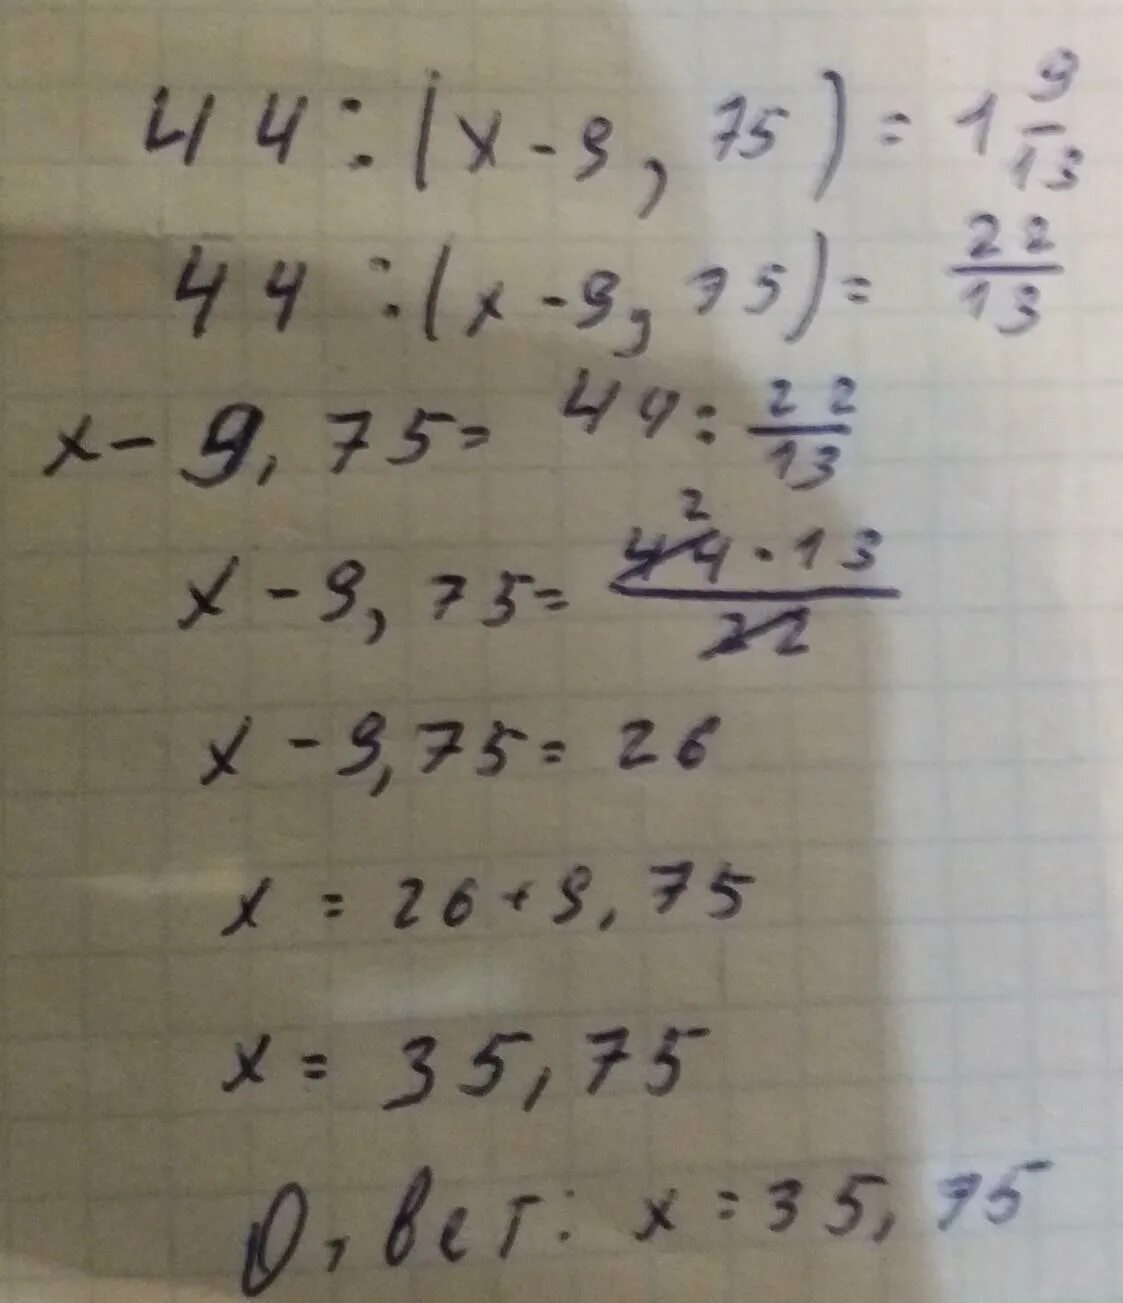 44 : (x - 9,75) = 1 9/13
44 : (x - 9,75) = 22/13
x - 9,75 = 44 : 22/13
x - 9,75 = 44 2 · 13 / 22
x - 9,75 = 26
x = 26 + 9,75
x = 35,75
О,вет: x = 35,75